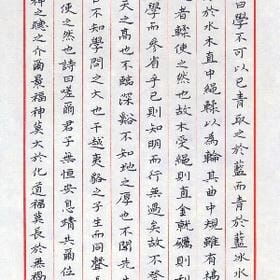 曰學不可以已青取之於藍而青於藍冰水
於水木直中繩輮以為輪其曲中規雖有槁
者輮使之然也故木受繩則直金就礪則利
學而參省乎己則知明而行無過矣故不登
天之高也不臨深谿不知地之厚也不聞先
不知學問之大也干越夷貉之子生而同聲
使之然也詩曰嗟爾君子無恒安息靖共爾位
神之聽之介爾景福神莫大於化道福莫長於無